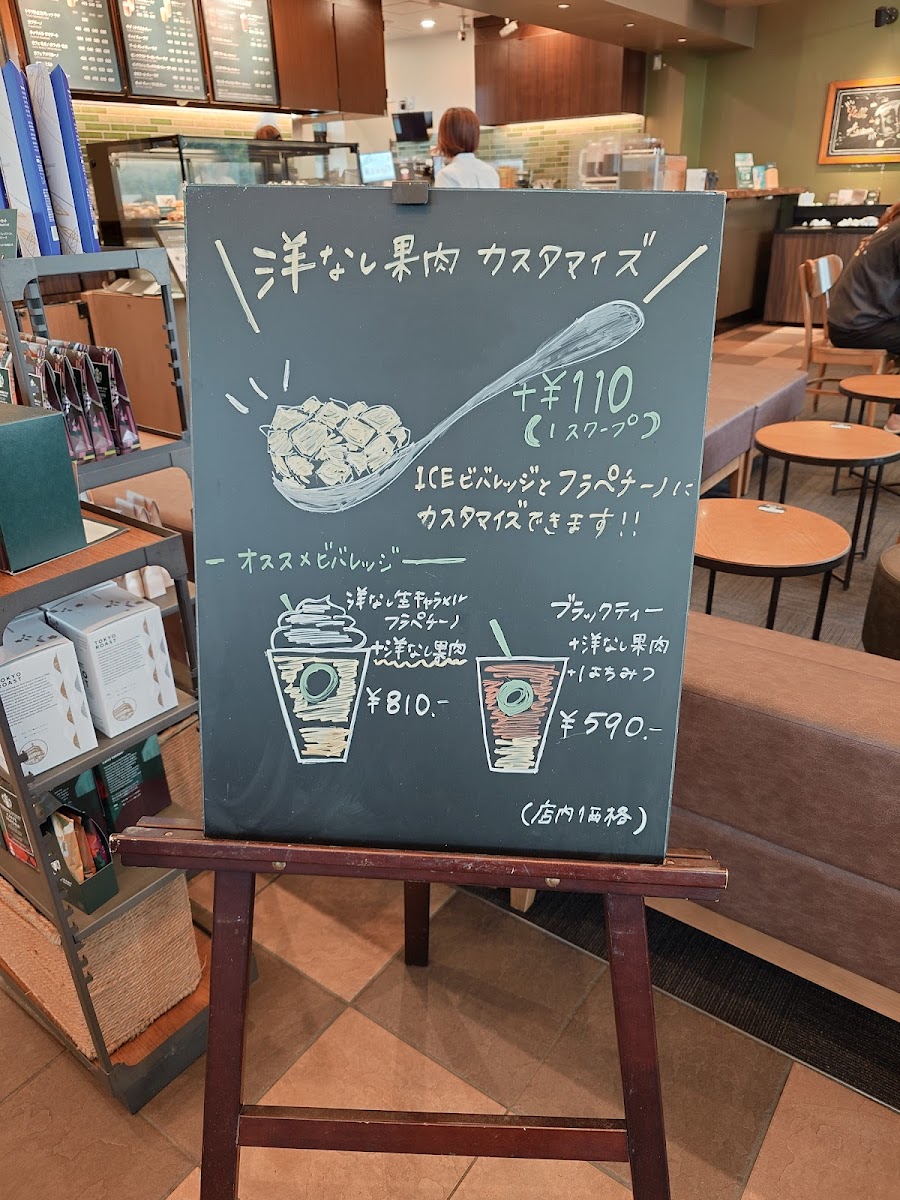 洋なし果肉 カスタマイズ
+¥110
(1スクープ)
ICEビバレッジとフラペチーノに
カスタマイズできます!!
オススメビバレッジ
洋なし生キャラメル
フラペチーノ
+洋なし果肉
¥810.-
ブラックティー
+洋なし果肉
+はちみつ
¥590.-
(店内価格)
TOKYO
ROAST
TOKYO
ROAST